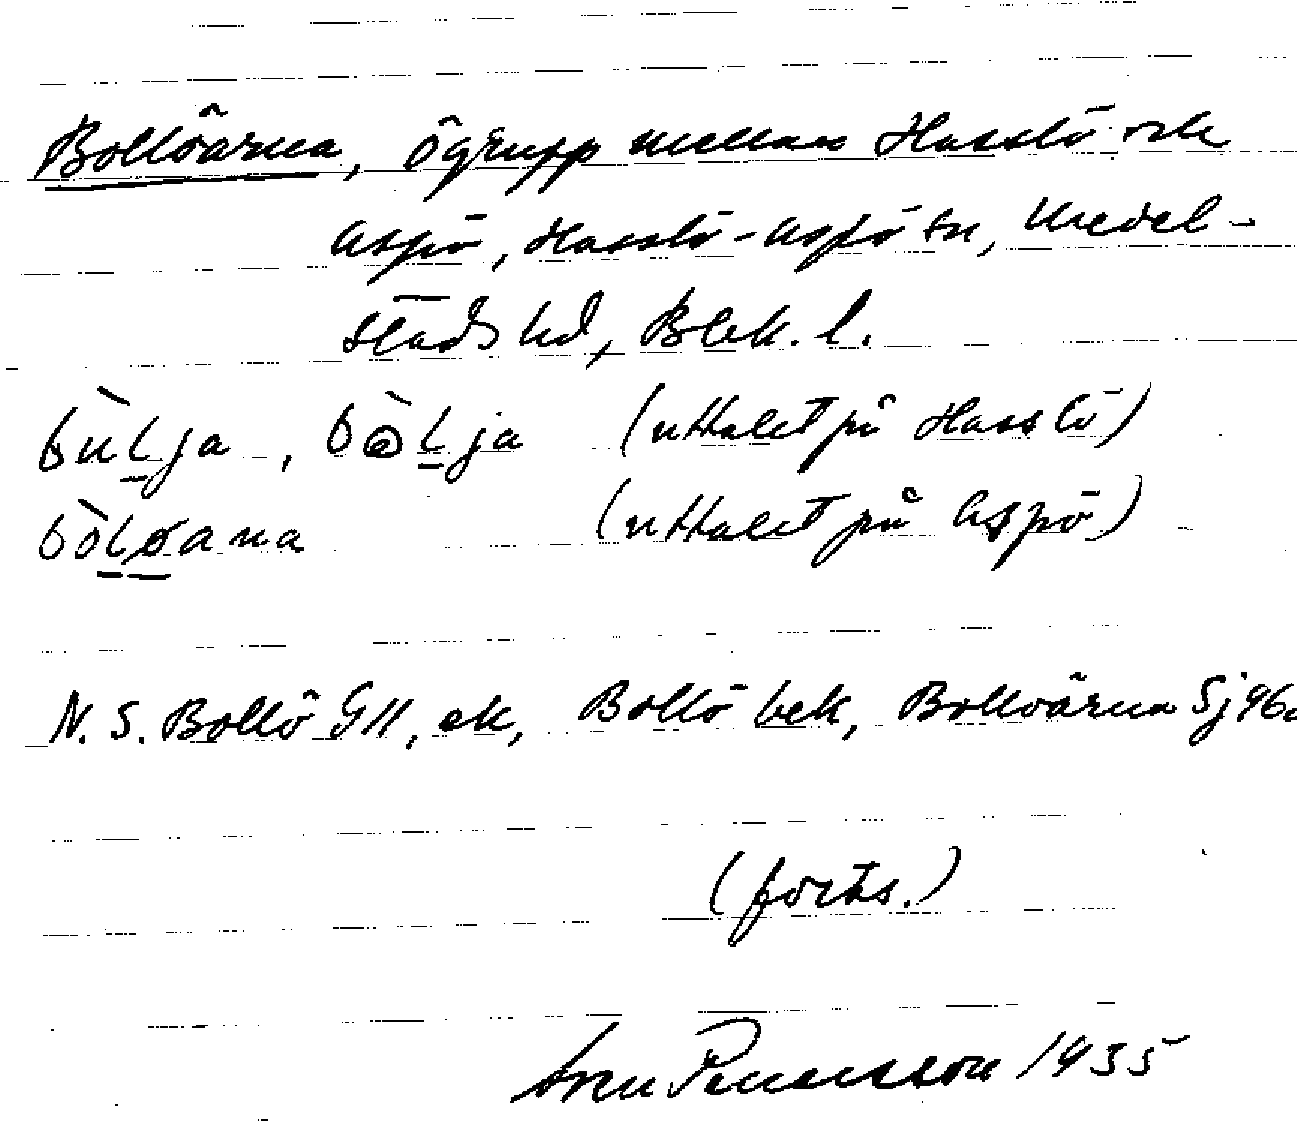 Bollöarna, ögrupp mellan Hasslö och
Aspö, Hasslö-Aspö sn, Medel-
stads hd, Blek. l.
bùlja, bòlja (uttalet på Hasslö)
bòløana (uttalet på Aspö)
N. S. Bollö GII, ek, Bollö bek, Bollöärna Sj 96
(forts.)
1935